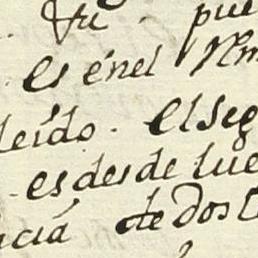 pue
es énel
leído. El seg
es desde lue
ciá de dos